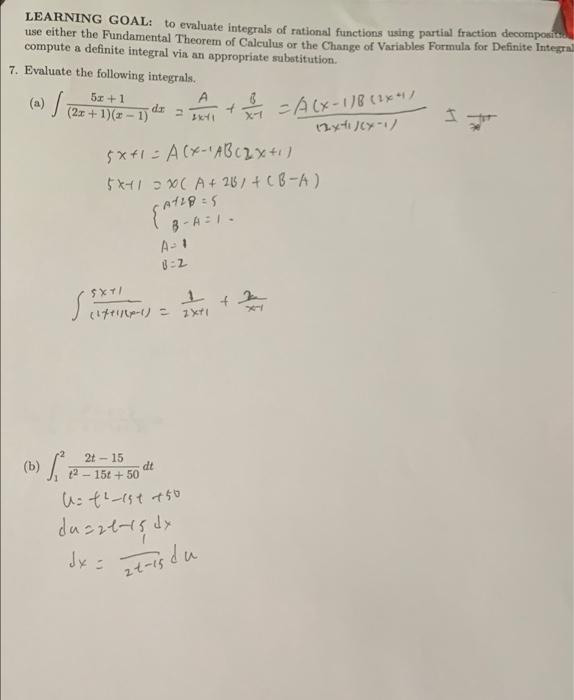 LEARNING GOAL: to evaluate integrals of rational functions using partial fraction decomposition
use either the Fundamental Theorem of Calculus or the Change of Variables Formula for Definite Integral
compute a definite integral via an appropriate substitution.
7. Evaluate the following integrals.
(a) ∫ (5x + 1)/((2x + 1)(x − 1)) dx = A/(2x+1) + B/(x-1) = (A(x-1)B(2x+1))/((2x+1)(x-1))
5x+1 = A(x-1AB(2x+1)
5x+1 = x(A+2B)+(B-A)
{ A+2B=5
B-A=1.
A=1
B=2
∫ (5x+1)/((2x+1)(x-1)) = 1/(2x+1) + 2/(x-1)
(b) ∫₁² (2t − 15)/(t² − 15t + 50) dt
u= t²-15t +50
du=2t-15 dx
dx = 1/(2t-15) du